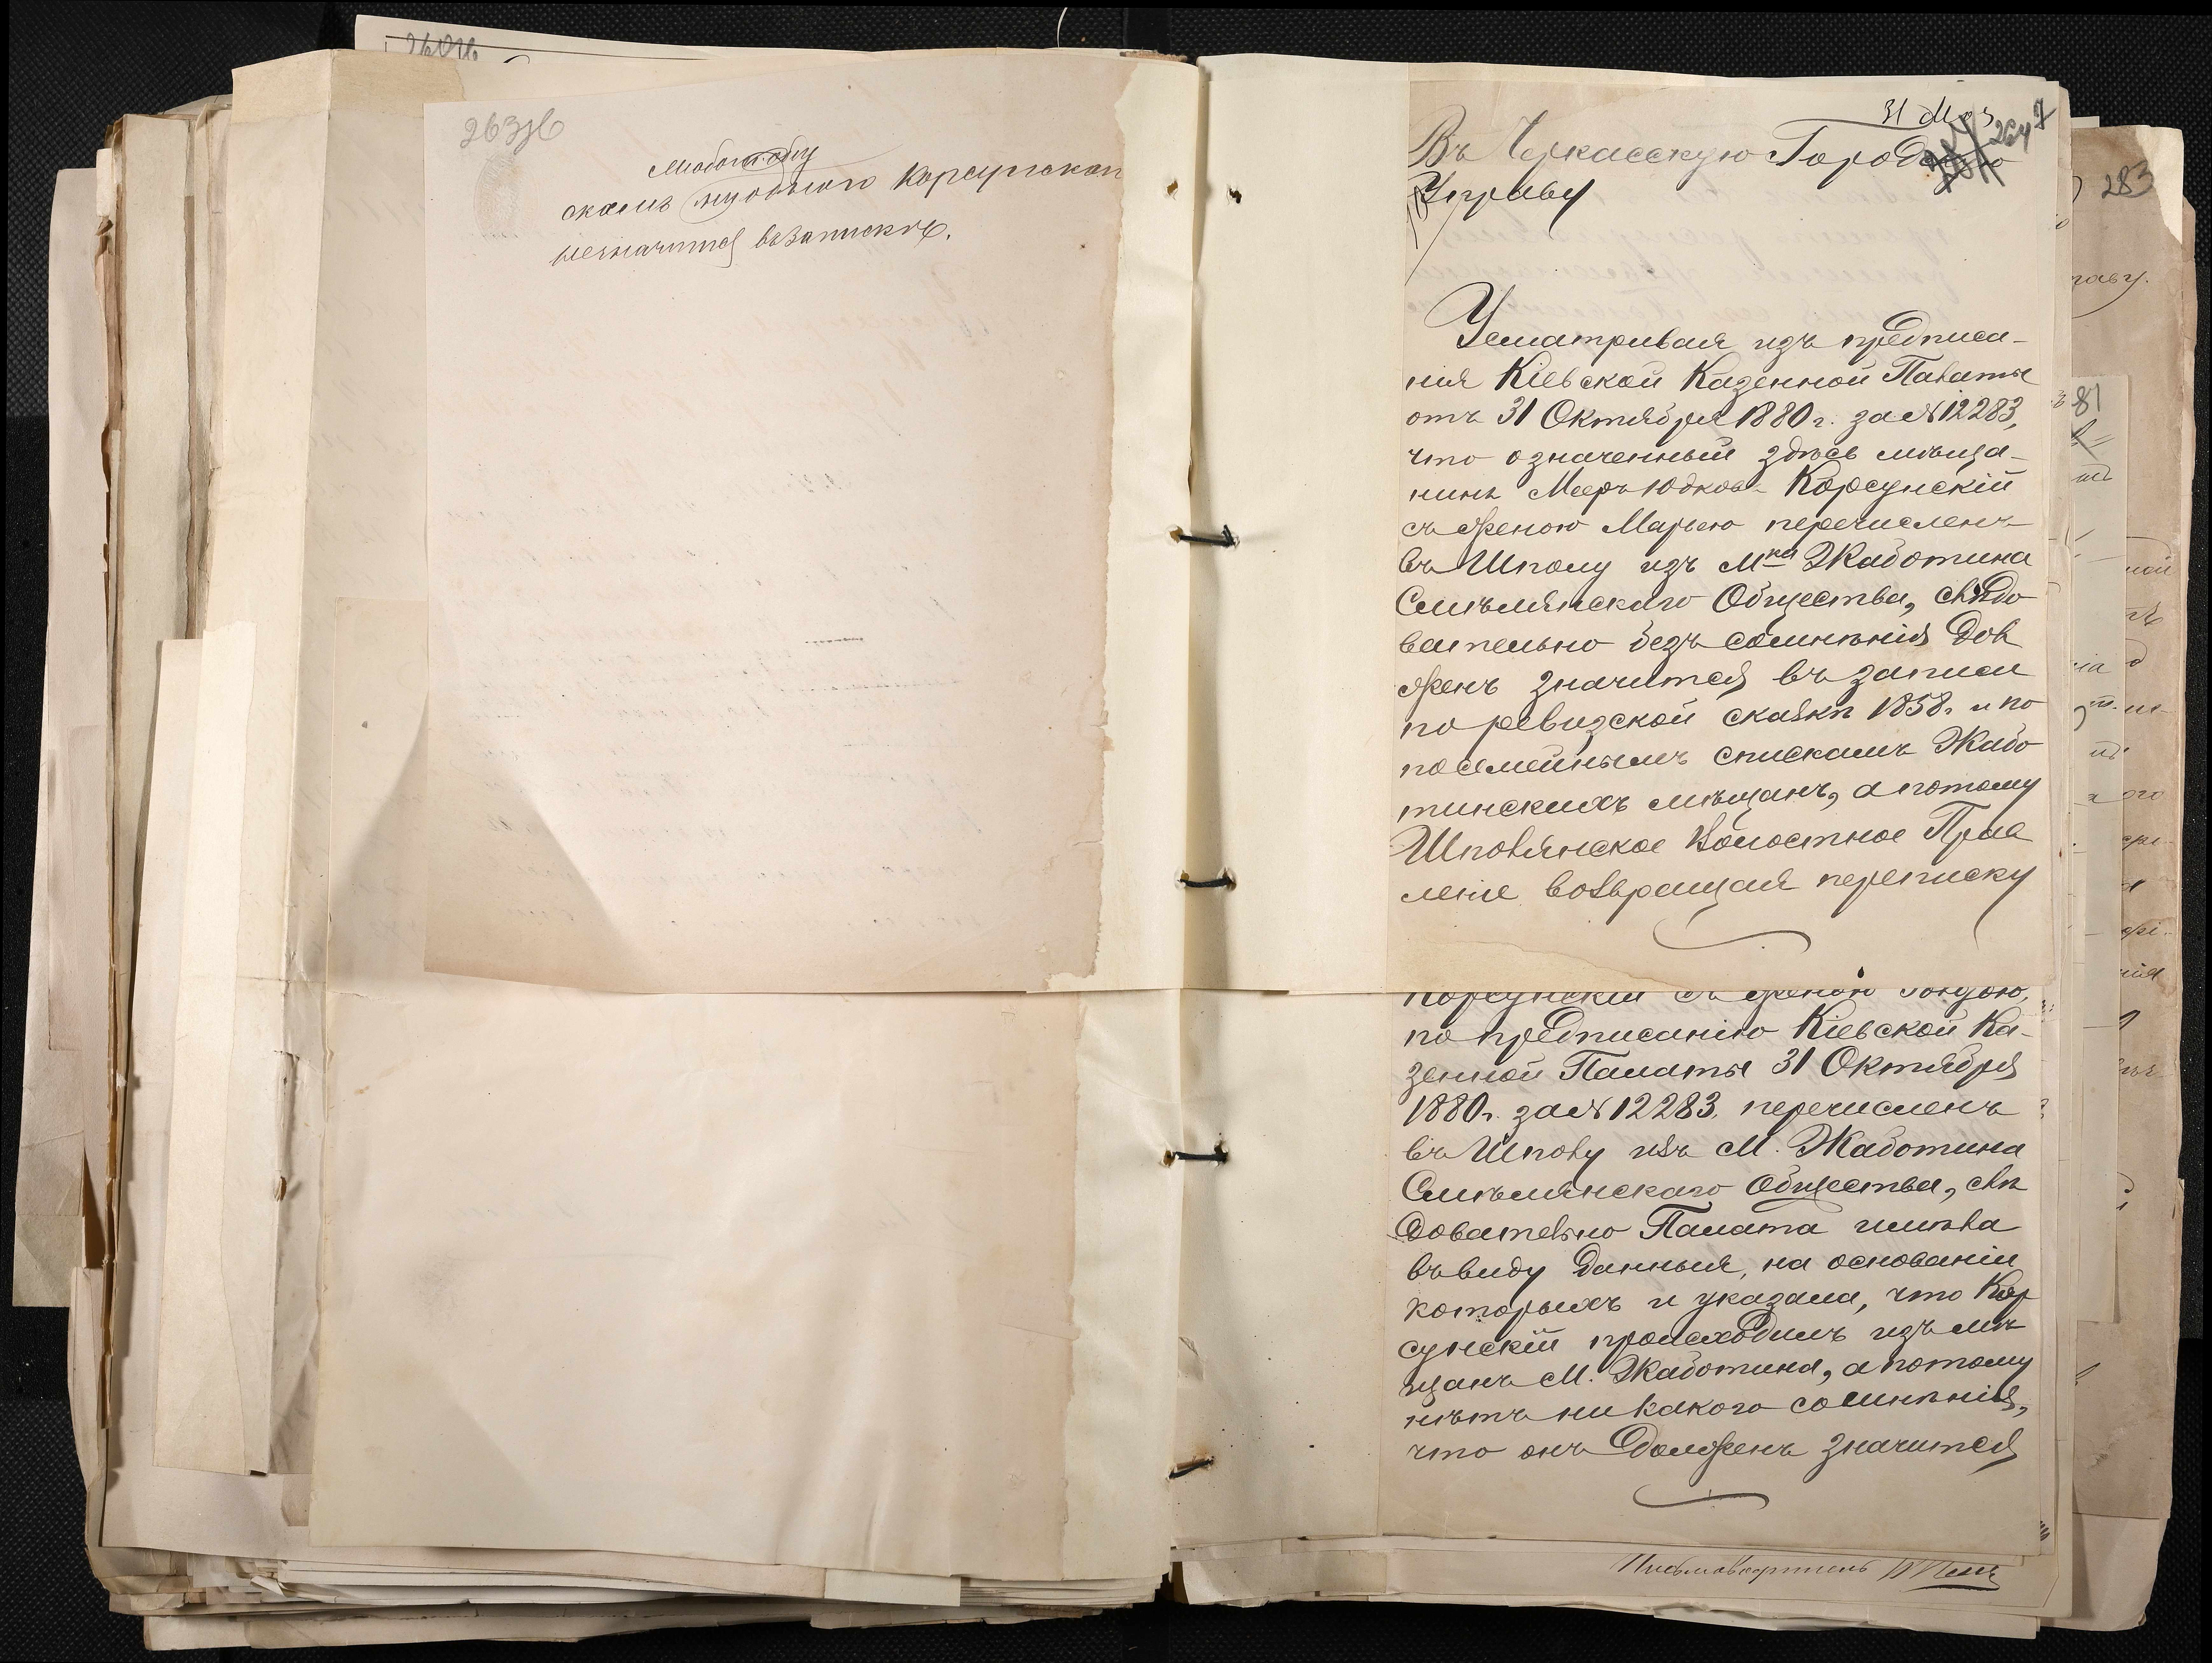 263
скомъ Корсунскаи
незначится въ запискѣ.
31 Маз
264
Въ Черкасскую Городскую
Управу
Усматривая изъ предписа-
нія Кіевской Казенной Палаты
отъ 31 Октября 1880 г. за № 12283,
что означенный здѣсь мѣща-
нинъ Мееръ Юдковъ Корсунскій
съ женою Марьею перечисленъ
въ Шполу изъ Мка Жаботина
Смѣлянскаго Общества, слѣдо
вательно безъ сомнѣнія дол
женъ значится въ записи
по ревизской сказкѣ 1858 г. и по
посемейнымъ спискамъ Жабо
тинскихъ мѣщанъ, а потому
Шполянское Волостное Прав
леніе возвращая переписку
Корсунскій съ женою
по предписанію Кіевской Ка-
зенной Палаты 31 Октября
1880 г. за № 12283. перечисленъ
въ Шполу изъ М. Жаботина
Смѣлянскаго Общества, слѣ
довательно Палата имѣла
въ виду данныя, на основаніи
которыхъ и указала, что Кор
сунскій происходитъ изъ мѣ
щанъ М. Жаботина, а потому
нѣтъ никакого сомнѣнія,
что онъ долженъ значится
Письмоводитель
283
раву.
81